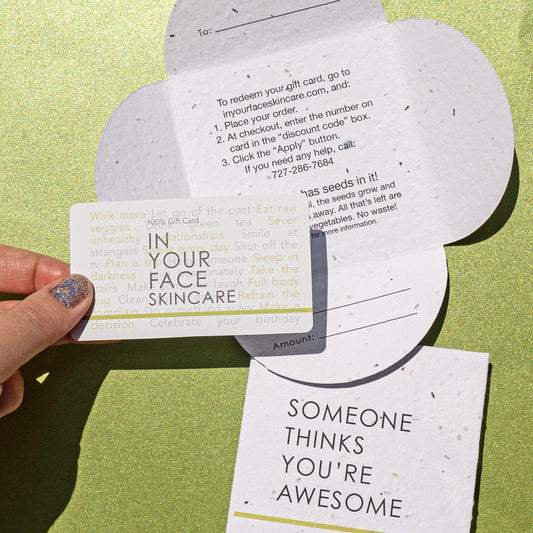 To:
To redeem your gift card, go to
inyourfaceskincare.com, and:
1. Place your order.
2. At checkout, enter the number on
card in the "discount code" box.
3. Click the "Apply" button.
If you need any help, call:
727-286-7684
has seeds in it!
the seeds grow and
away. All that's left are
vegetables. No waste!
for more information.
Amount:
100% Gift Card
Walk more Let go of the past Eat raw
veggies Drink green tea Sever
unhealthy relationships Smile at
strangers every day Shut off the
tv Plan a someone Sleep in
darkness Take the
stairs laugh Full body
hug Clean Refrain the
complain Do something scary Make a
decision Celebrate your birthday
IN
YOUR
FACE
SKINCARE
SOMEONE
THINKS
YOU'RE
AWESOME